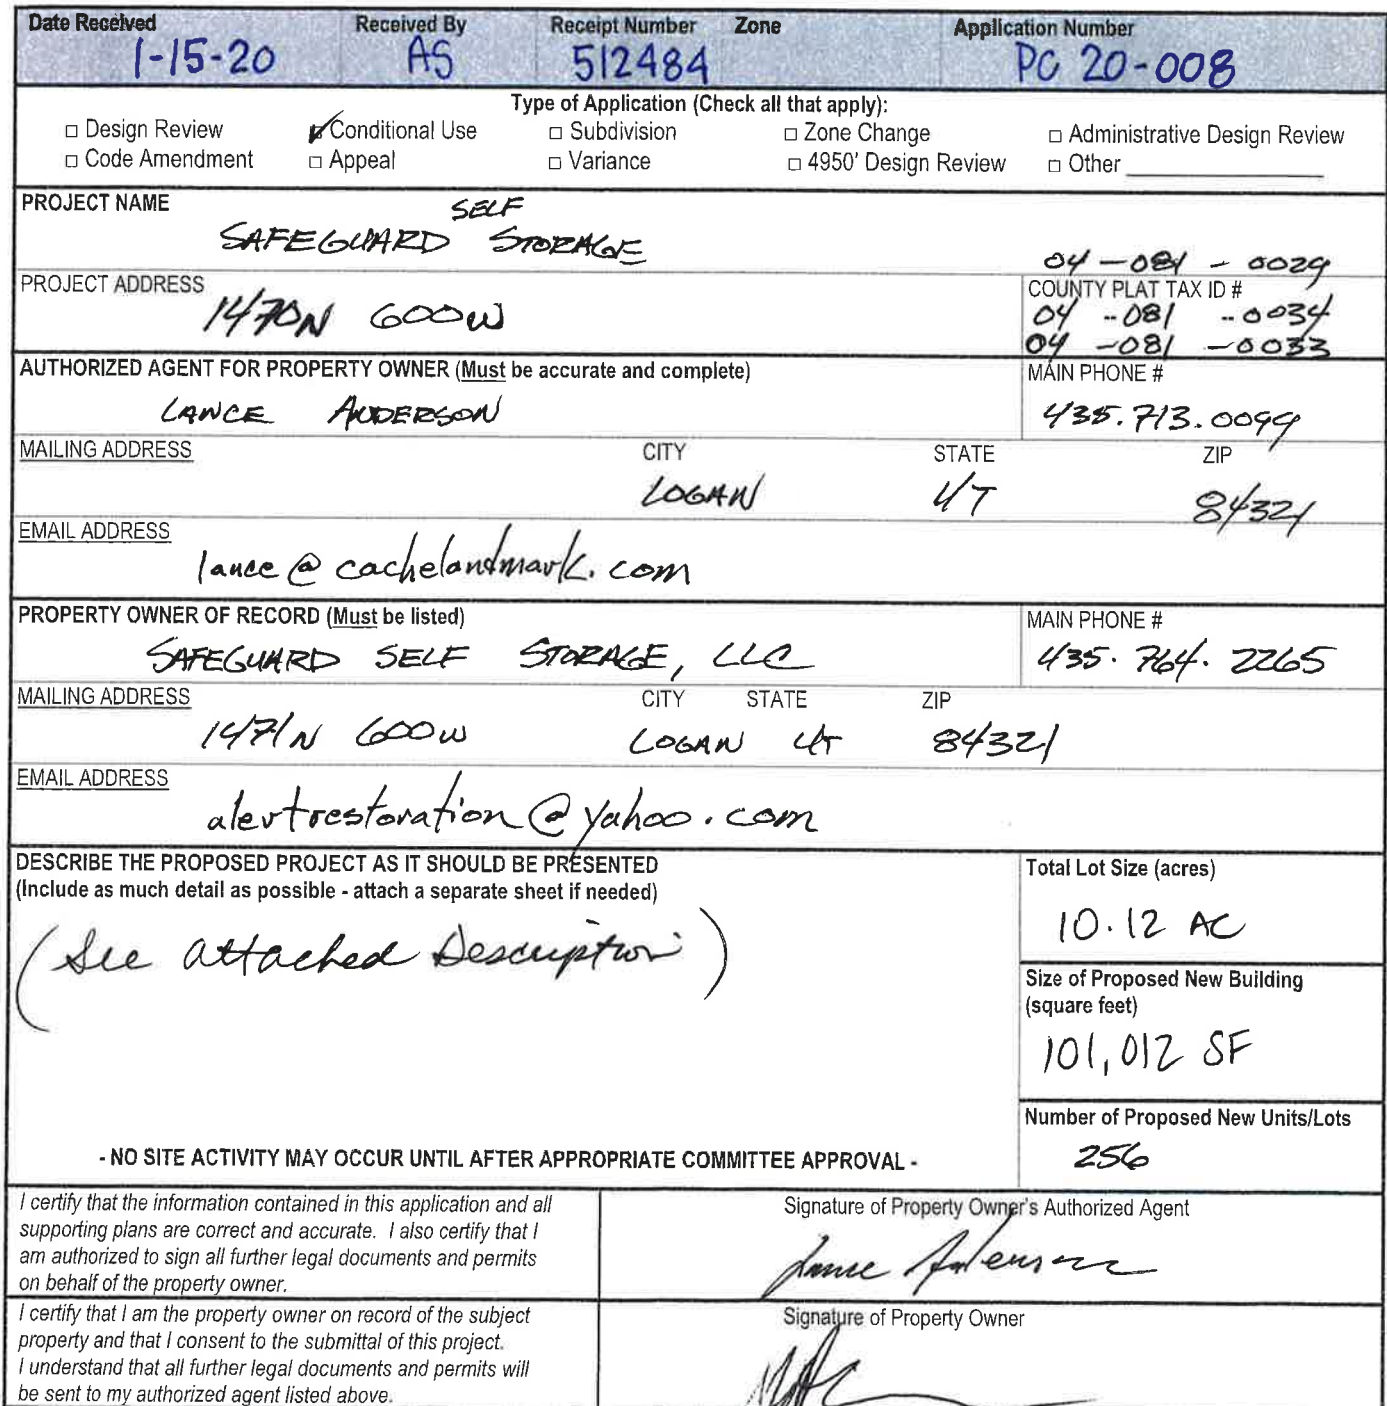 Date Received Received By Receipt Number Zone Application Number
1-15-20 AS 512484 PC 20-008
Type of Application (Check all that apply):
□ Design Review ☑ Conditional Use □ Subdivision □ Zone Change □ Administrative Design Review
□ Code Amendment □ Appeal □ Variance □ 4950' Design Review □ Other
PROJECT NAME
SAFEGUARD SELF STORAGE
04-081-0029
PROJECT ADDRESS COUNTY PLAT TAX ID #
1470N 600W 04-081-0034
04-081-0033
AUTHORIZED AGENT FOR PROPERTY OWNER (Must be accurate and complete) MAIN PHONE #
LANCE ANDERSON 435.713.0099
MAILING ADDRESS CITY STATE ZIP
LOGAN UT 84321
EMAIL ADDRESS
lance@cachelandmark.com
PROPERTY OWNER OF RECORD (Must be listed) MAIN PHONE #
SAFEGUARD SELF STORAGE, LLC 435.764.2265
MAILING ADDRESS CITY STATE ZIP
1471N 600W LOGAN UT 84321
EMAIL ADDRESS
alertrestoration@yahoo.com
DESCRIBE THE PROPOSED PROJECT AS IT SHOULD BE PRESENTED Total Lot Size (acres)
(Include as much detail as possible - attach a separate sheet if needed)
(See attached Description) 10.12 AC
Size of Proposed New Building
(square feet)
101,012 SF
Number of Proposed New Units/Lots
- NO SITE ACTIVITY MAY OCCUR UNTIL AFTER APPROPRIATE COMMITTEE APPROVAL - 256
I certify that the information contained in this application and all
supporting plans are correct and accurate. I also certify that I
am authorized to sign all further legal documents and permits
on behalf of the property owner.
Signature of Property Owner's Authorized Agent
Lance Anderson
I certify that I am the property owner on record of the subject
property and that I consent to the submittal of this project.
I understand that all further legal documents and permits will
be sent to my authorized agent listed above.
Signature of Property Owner